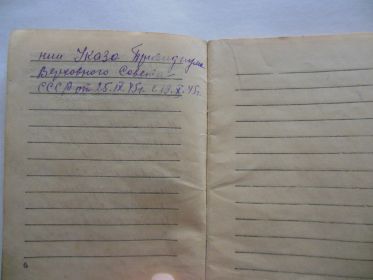 нии Указа Президиума
Верховного Совета
СССР от 25.IX.45г. с 19.X.45г.
6